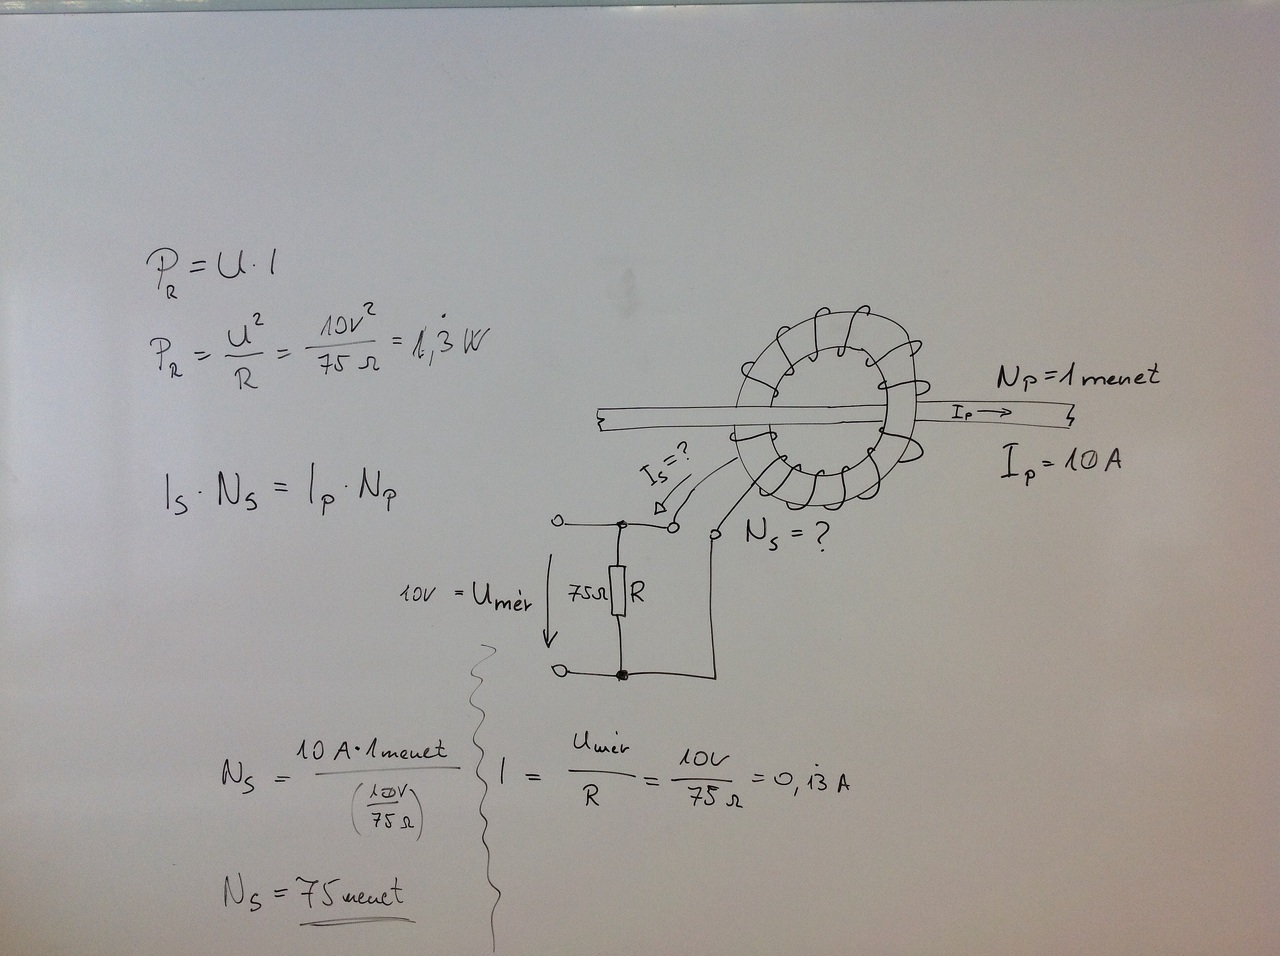 P_R = U · I
P_R = U² / R = 10V² / 75 Ω = 1,3̇ W
I_s · N_s = I_p · N_p
N_p = 1 menet
I_p →
I_p = 10 A
I_s = ?
N_s = ?
10V = U_mér
75Ω R
N_s = 10 A · 1 menet / (10V / 75 Ω)
I = U_mér / R = 10V / 75 Ω = 0,13̇ A
N_s = 75 menet